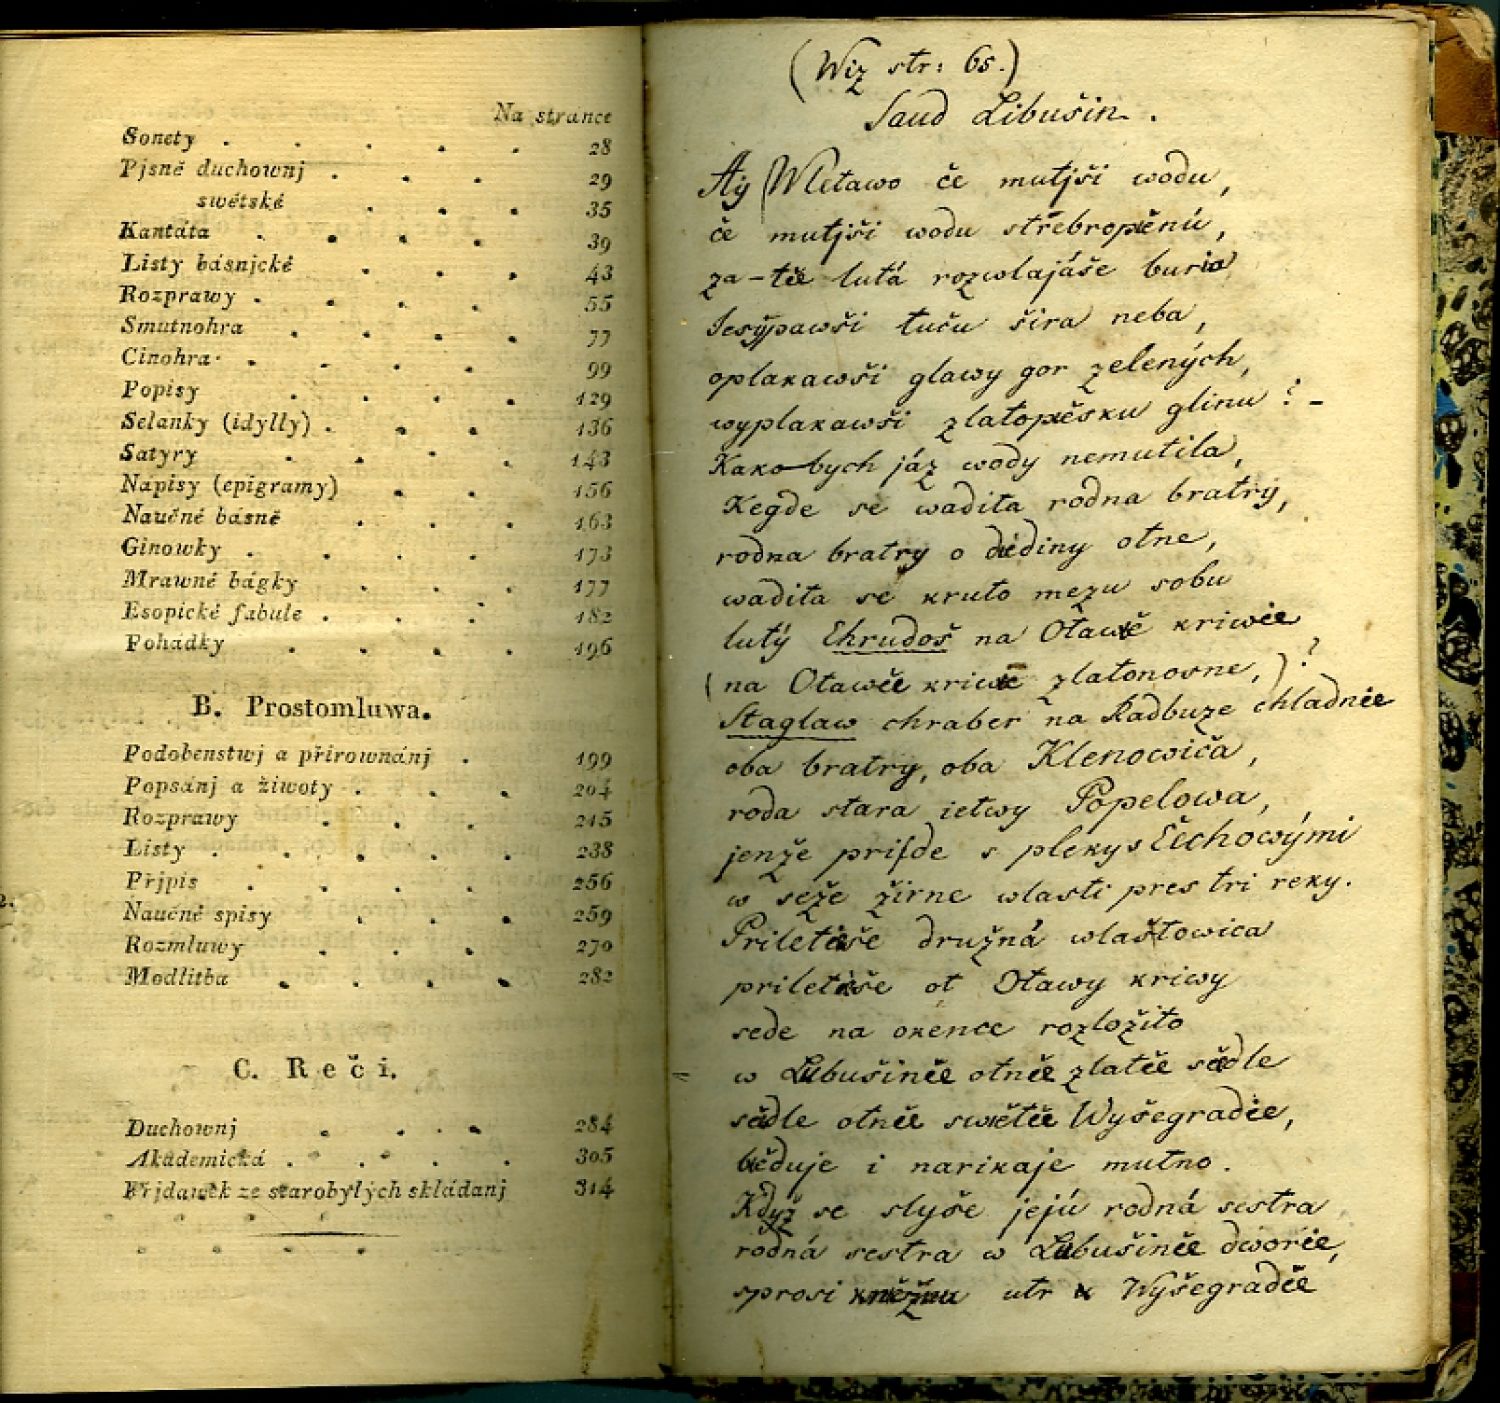 Na strance
Sonety . . . . . 28
Pjsně duchownj . . . 29
swětské . . . 35
Kantáta . . . . 39
Listy básnjcké . . . 43
Rozprawy . . . . 55
Smutnohra . . . . 77
Cinohra . . . . 99
Popisy . . . . 129
Selanky (idylly) . . . 136
Satyry . . . . 143
Nápisy (epigramy) . . 156
Naučné básně . . . 163
Ginowky . . . . 173
Mrawné bágky . . . 177
Esopické fabule . . . 182
Pohádky . . . . 196
B. Prostomluwa.
Podobenstwj a přirownánj . 199
Popsánj a žiwoty . . . 204
Rozprawy . . . 215
Listy . . . . . 238
Přjpis . . . . 256
Naučné spisy . . . 259
Rozmluwy . . . 270
Modlitba . . . . 282
C. Řeči.
Duchownj . . . . 284
Akademická . . . . 305
Přjdawek ze starobylých skládanj 314
(Wiz str: 65.)
Saud Libušin.
Aý Wletawo če mutjši wodu,
če mutjši wodu střebropěnú,
za-tě lutá rozwlajáše buria
Sesýpawši tuču šira neba,
oplakawši glawy gor zelených,
wyplakawši zlatopěsku glinu? -
Kako bych jáz wody nemutila,
Kegde se wadita rodna bratry,
rodna bratry o dědiny otne,
wadita se kruto mezu sobu
lutý Chrudoš na Otawě kriwěe
(na Otawěe kriwě zlatonosne,)?
Staglaw chraber na Radbuze chladněe
oba bratry, oba Klenowiča,
roda stara tetwy Popelowa,
jenže pride s pleky s Čechowými
w seže žirne wlasti pres tri reky.
Priletěše družná wlaštowica
priletěše ot Otawy kriwy
sede na okence rozložito
w Lubušině otně zlatě sědle
sědle otně swětě Wyšegradě,
běduje i narikaje mutno.
Když se slyše jejú rodná sestra
rodná sestra w Lubušině dwoře,
sprosi kněžnu utr Wyšegradě